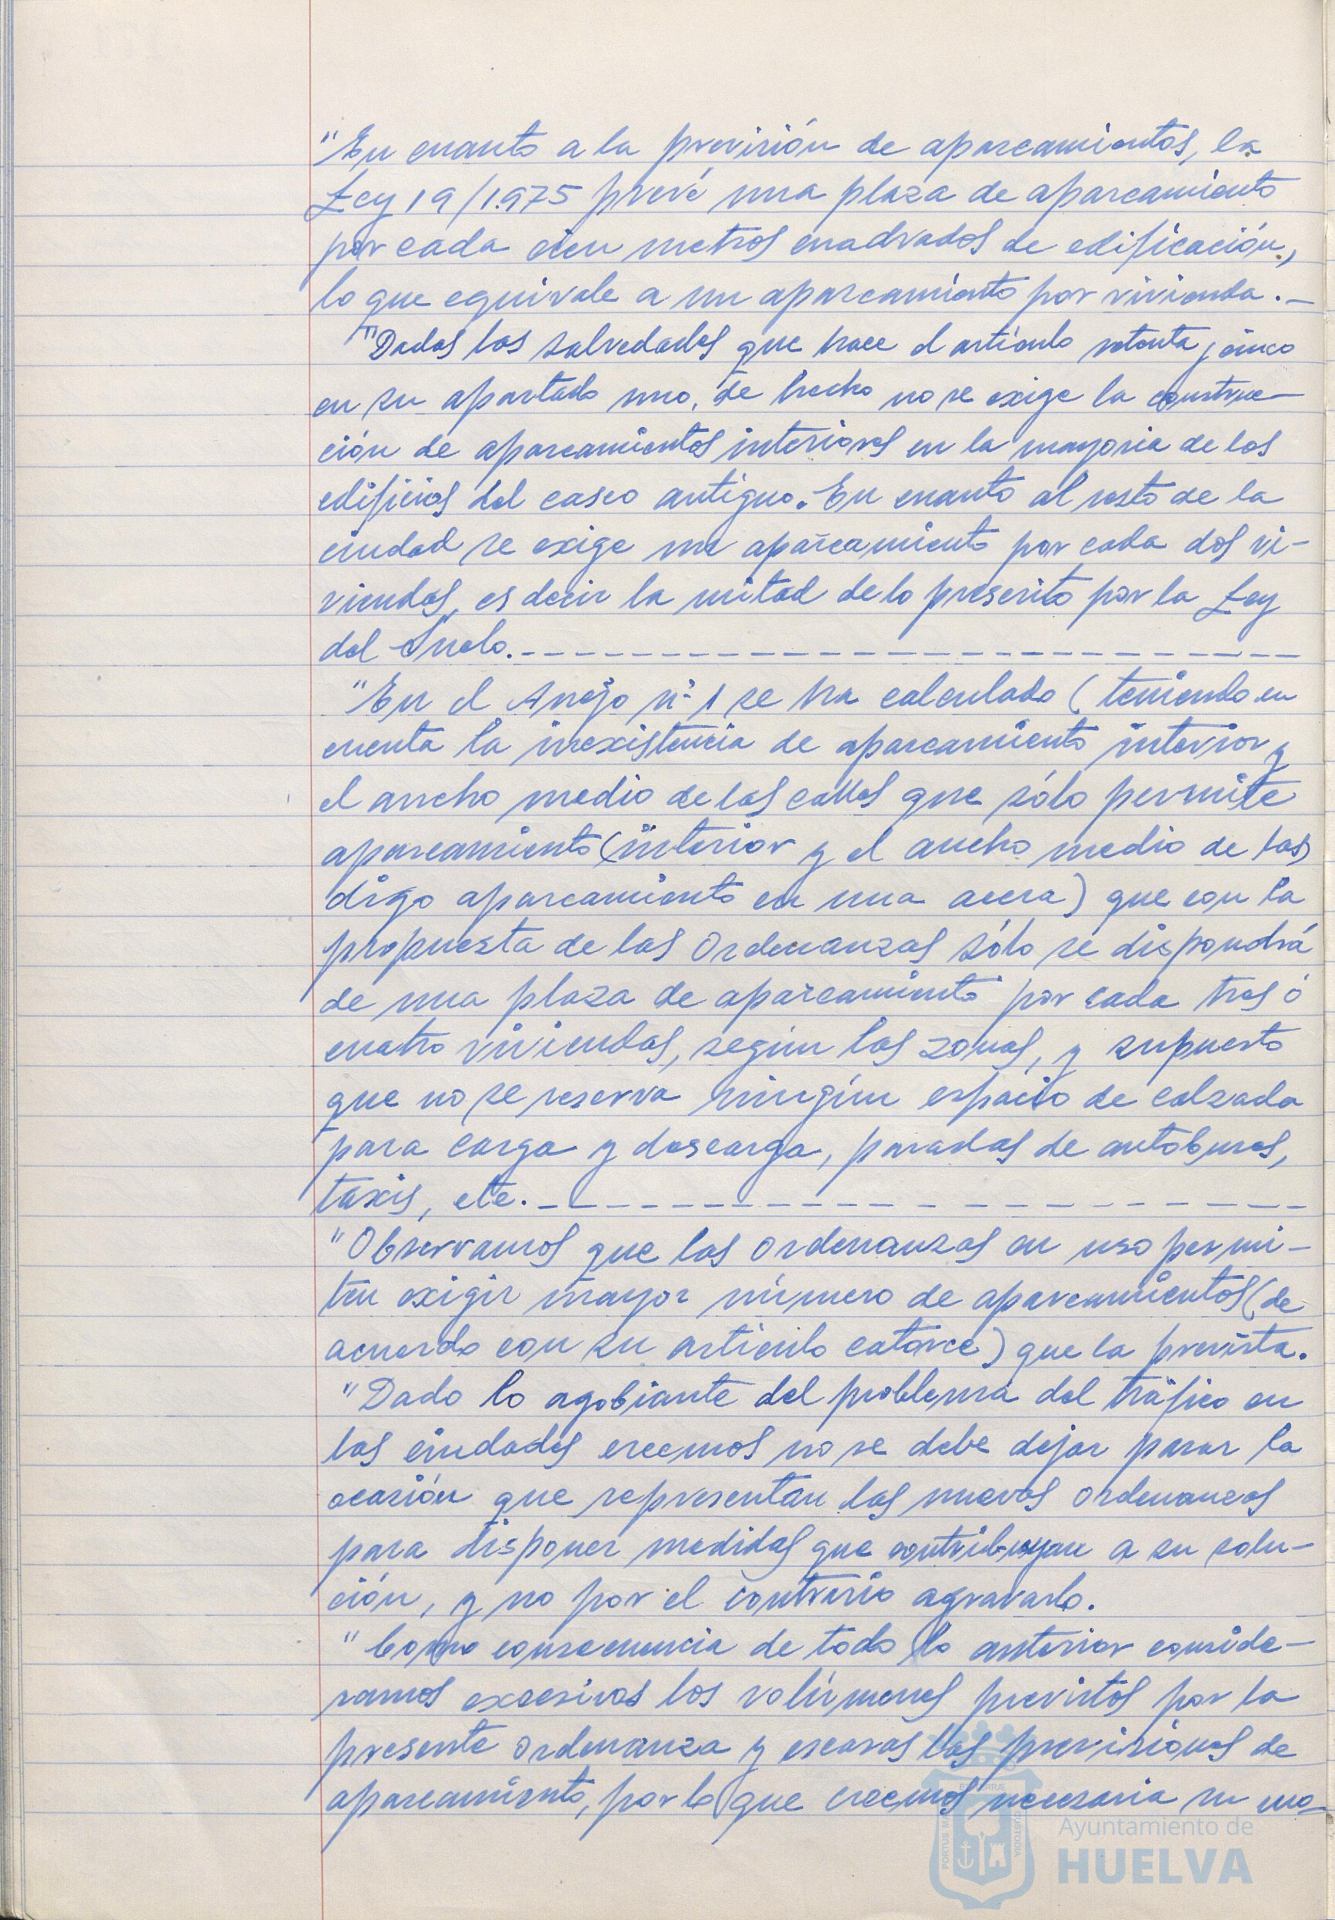 "En cuanto a la previsión de aparcamientos, la
Ley 19/1.975 prevé una plaza de aparcamiento
por cada cien metros cuadrados de edificación,
lo que equivale a un aparcamiento por vivienda.–
"Dadas las salvedades que hace el artículo setenta y cinco
en su apartado uno, de hecho no se exige la construc–
ción de aparcamientos interiores en la mayoria de los
edificios del casco antiguo. En cuanto al resto de la
ciudad se exige un aparcamiento por cada dos vi–
viendas, es decir la mitad de lo prescrito por la Ley
del Suelo.– – – – – – – – – – – – – – – – – –
"En el Anejo nº 1 se ha calculado (teniendo en
cuenta la inexistencia de aparcamiento interior y
el ancho medio de las calles que sólo permite
aparcamiento (interior y el ancho medio de las)
digo aparcamiento en una acera) que con la
propuesta de las Ordenanzas sólo se dispondrá
de una plaza de aparcamiento por cada tres ó
cuatro viviendas, según las zonas, y supuesto
que no se reserva ningún espacio de calzada
para carga y descarga, paradas de autobuses,
taxis, etc.– – – – – – – – – – – – – – – – –
"Observamos que las Ordenanzas en uso permi–
ten exigir mayor número de aparcamientos (de
acuerdo con su artículo catorce) que la prevista.
"Dado lo agobiante del problema del tráfico en
las ciudades creemos no se debe dejar pasar la
ocasión que representan las nuevas Ordenanzas
para disponer medidas que contribuyan a su solu–
ción, y no por el contrario agravarlo.
"Como consecuencia de todo lo anterior conside–
ramos excesivos los volúmenes previstos por la
presente Ordenanza y escasas las previsiones de
aparcamiento, por lo que creemos necesaria su mo–
Ayuntamiento de
HUELVA